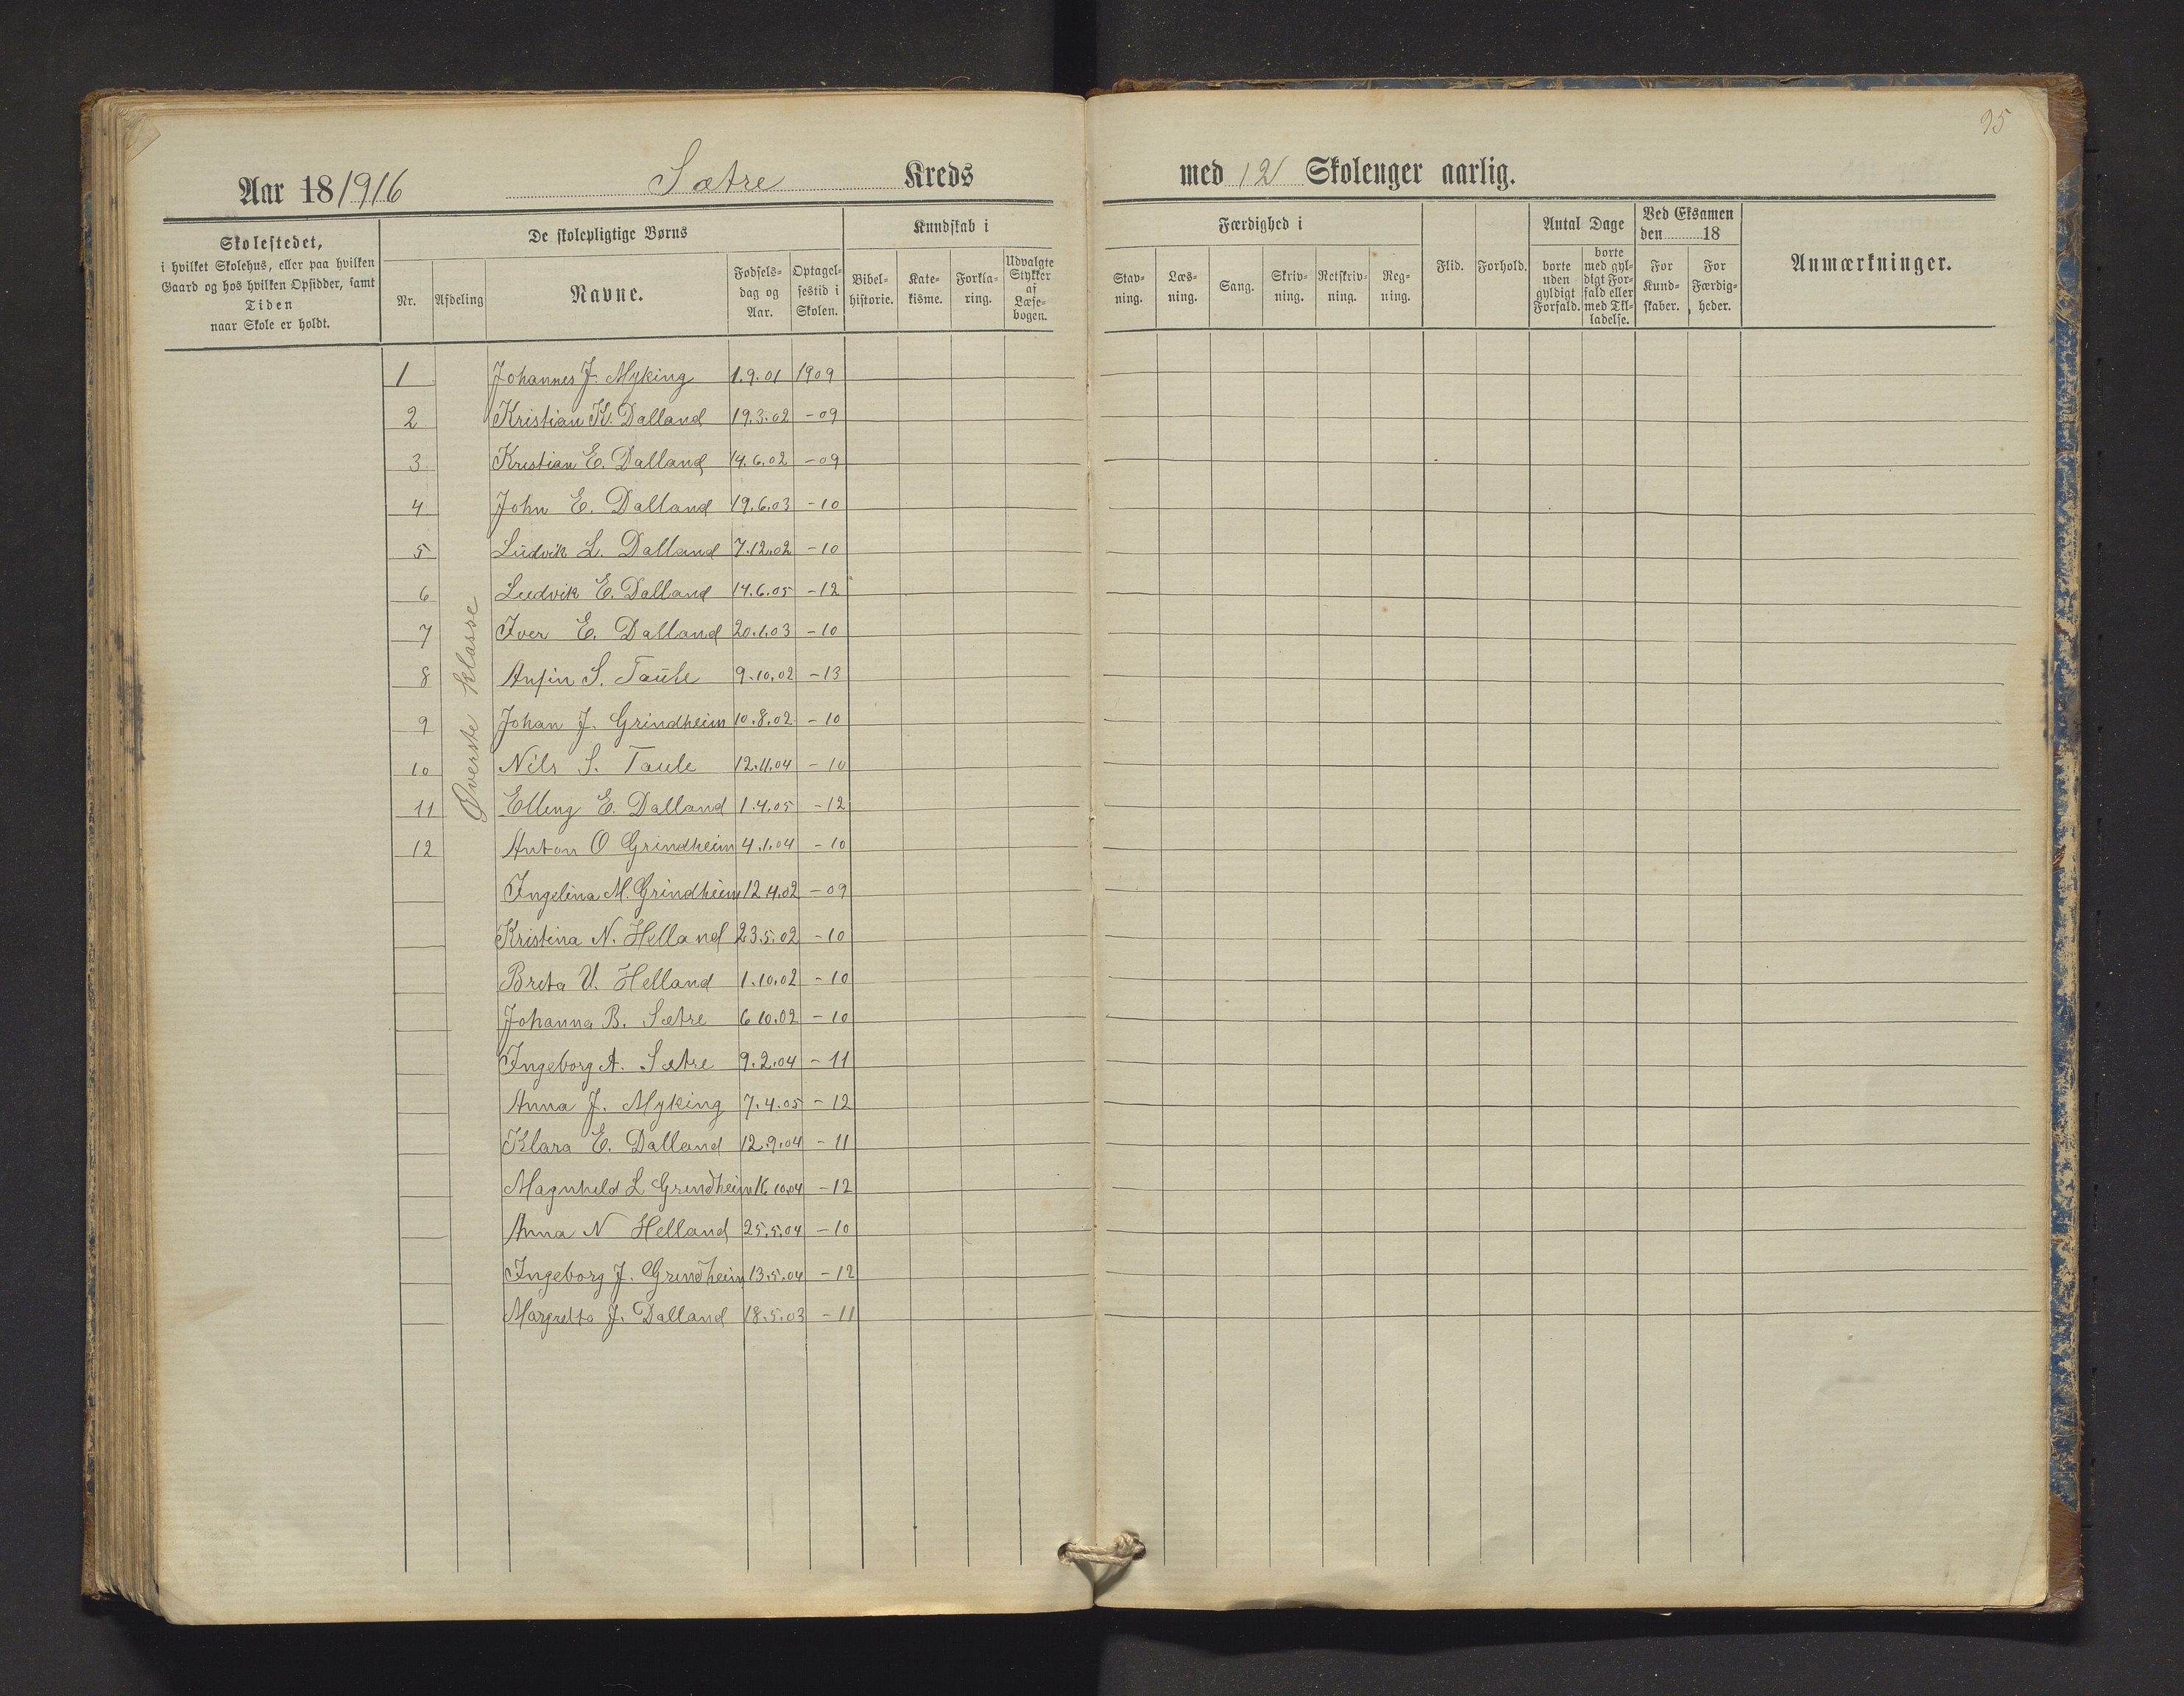 95
Aar 18/1916 Sætre Kreds med 12 Skoleuger aarlig.
Skolestedet,
i hvilket Skolehus, eller paa hvilken
Gaard og hos hvilken Opsidder, samt
Tiden
naar Skole er holdt.
De skolepligtige Børns
Nr.
Afdeling
Navne.
Fødsels-
dag og
Aar.
Optagel-
sestid i
Skolen.
Kundskab i
Bibel-
historie.
Kate-
kisme.
Forkla-
ring.
Udvalgte
Stykker
af
Læse-
bogen.
Færdighed i
Stav-
ning.
Læs-
ning.
Sang.
Skriv-
ning.
Retskriv-
ning.
Reg-
ning.
Flid.
Forhold.
Antal Dage
borte
uden
gyldigt
Forfald.
borte
med gyl-
digt For-
fald eller
med Til-
ladelse.
Ved Eksamen
den 18
For
Kund-
skaber.
For
Færdig-
heder.
Anmærkninger.
Øverste klasse
1 Johannes J. Myking 1.9.01 1909
2 Kristian K. Dalland 19.3.02 -09
3 Kristian E. Dalland 14.6.02 -09
4 John E. Dalland 19.6.03 -10
5 Ludvik L. Dalland 7.12.02 -10
6 Ludvik E. Dalland 14.6.05 -12
7 Iver E. Dalland 20.1.03 -10
8 Anfin S. Taule 9.10.02 -13
9 Johan J. Grindheim 10.8.02 -10
10 Nils S. Taule 12.11.04 -10
11 Elling E. Dalland 1.4.05 -12
12 Anton O Grindheim 4.1.04 -10
Ingelina M. Grindheim 12.4.02 -09
Kristina N. Helland 23.5.02 -10
Brita U. Helland 1.10.02 -10
Johanna B. Sætre 6.10.02 -10
Ingeborg A. Sætre 9.2.04 -11
Anna J. Myking 7.4.05 -12
Klara E. Dalland 12.9.04 -11
Magnhild L Grindheim 16.10.04 -12
Anna N Helland 25.5.04 -10
Ingeborg J. Grindheim 13.5.04 -12
Margretta J. Dalland 18.5.03 -11